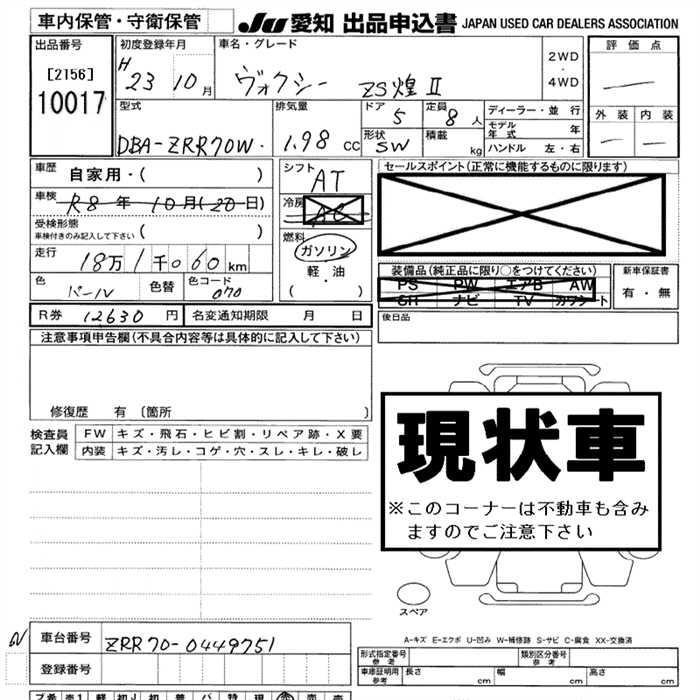 車内保管・守衛保管
JU 愛知 出品申込書 JAPAN USED CAR DEALERS ASSOCIATION
出品番号
[2156]
10017
初度登録年月
H 23 10 月
車名・グレード
ヴォクシー ZS煌Ⅱ
2WD
・
4WD
評価点
外装 内装
型式
DBA-ZRR70W
排気量
1.98 cc
ドア 5
定員 8 人
形状 SW
積載 kg
ディーラー・並行
モデル年式 年
ハンドル 左・右
車歴
自家用・( )
車検
R8 年 10 月(20日)
受検形態
車検付きのみ記入して下さい ( )
走行
18万 1 千 0 60 km
色 パール 色替 色コード 070
シフト
AT
冷房
AC
燃料
ガソリン
軽・油
( ・ )
セールスポイント(正常に機能するものに限ります)
装備品(純正品に限り○をつけてください)
PS PW エアB AW
SH ナビ TV カワシート
新車保証書
有・無
R券 12630 円 名変通知期限 月 日
後日品
注意事項申告欄(不具合内容等は具体的に記入して下さい)
修復歴 有 〔箇所 〕
検査員記入欄
FW キズ・飛石・ヒビ割・リペア跡・X要
内装 キズ・汚レ・コゲ・穴・スレ・キレ・破レ
現状車
※このコーナーは不動車も含み
ますのでご注意下さい
スペア
A-キズ E-エクボ U-凹み W-補修跡 S-サビ C-腐食 XX-交換済
車台番号 ZRR70-0449751
登録番号
形式指定番号 参考 類別区分番号 参考
車庫証明用 参考 長さ cm 幅 cm 高さ cm